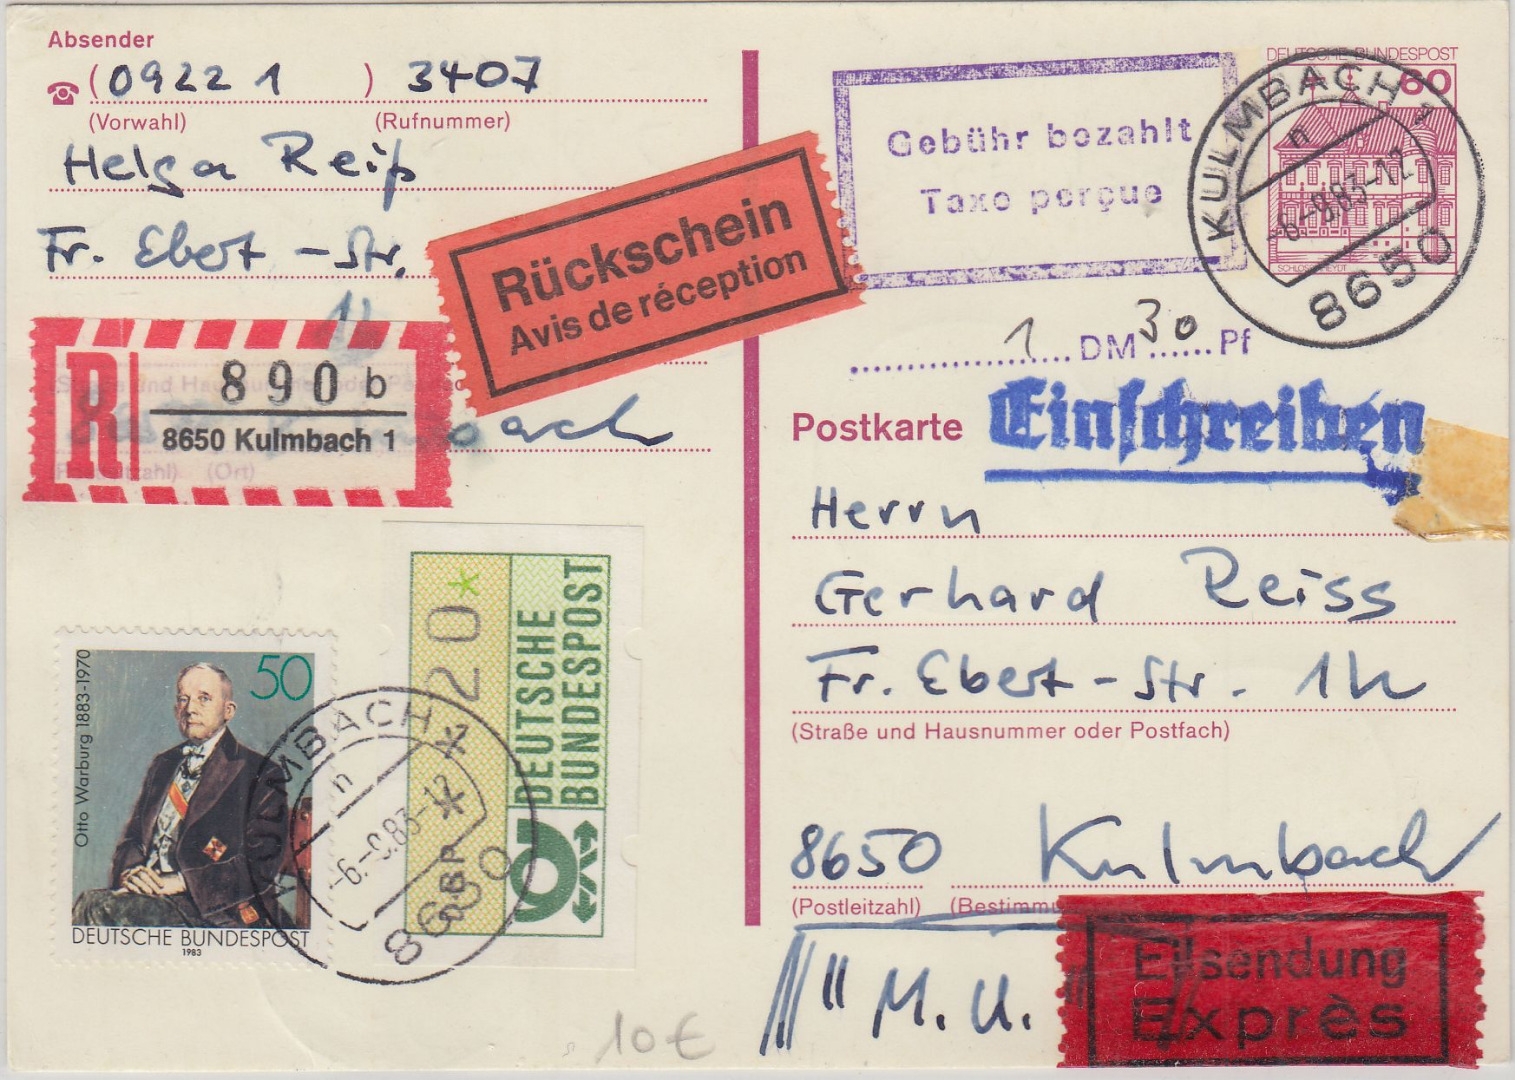 Absender
(09221) 3407
(Vorwahl) (Rufnummer)
Helga Reiß
Fr. Ebert-Str.
Rückschein
Avis de réception
R 890 b
8650 Kulmbach 1
(Ort)
ach
Gebühr bezahlt
Taxe perçue
1 DM 30 Pf
DEUTSCHE BUNDESPOST
60
SCHLOSS RHEYDT
KULMBACH 1
n
-6.-9.83-12
8650
Postkarte
Einschreiben
Herrn
Gerhard Reiss
Fr. Ebert-Str. 1h
(Straße und Hausnummer oder Postfach)
8650 Kulmbach
(Postleitzahl) (Bestimmu
" M. U.
Eilsendung
Exprès
Otto Warburg 1883-1970
50
DEUTSCHE BUNDESPOST
1983
*020**
DBP
DEUTSCHE
BUNDESPOST
KULMBACH
n
-6.-9.83-12
8650
10€